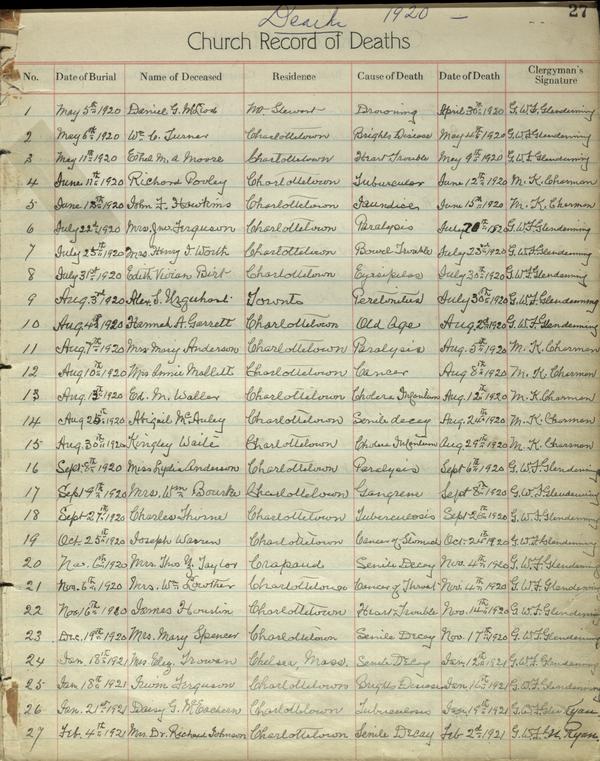 Death 1920 –
27
Church Record of Deaths
No. Date of Burial Name of Deceased Residence Cause of Death Date of Death Clergyman's Signature
1 May 5th 1920 Daniel G. McLeod Mt Stewart Drowning April 30th 1920 G.W.F. Glendenning
2 May 6th 1920 Wm. C. Turner Charlottetown Brights Disease May 4th 1920 G.W.F. Glendenning
3 May 11th 1920 Ethel M. A. Moore Charlottetown Heart Trouble May 9th 1920 G.W.F. Glendenning
4 June 11th 1920 Richard Povley Charlottetown Tubercular June 12th 1920 M. K. Charman
5 June 18th 1920 John F. Hawkins Charlottetown Jaundice June 15th 1920 M. K. Charman
6 July 22nd 1920 Mrs. Jno. Ferguson Charlottetown Paralysis July 20th G.W.F. Glendenning
7 July 25th 1920 Mrs. Henry J. Worth Charlottetown Bowel Trouble July 23rd 1920 G.W.F. Glendenning
8 July 31st 1920 Edith Vivian Birt Charlottetown Eyrsipelas July 30th 1920 G.W.F. Glendenning
9 Aug. 3rd 1920 Alex. S. Urquhart Toronto Peretonitus July 30th 1920 G.W.F. Glendenning
10 Aug 4th 1920 Hannah A. Garrett Charlottetown Old Age Aug. 2nd 1920 G.W.F. Glendenning
11 Aug. 7th 1920 Mrs Mary Anderson Charlottetown Paralysis Aug. 5th 1920 M. K. Charman
12 Aug 10th 1920 Mrs Annie Mallett Charlottetown Cancer Aug 8th 1920 M. K. Charman
13 Aug. 13th 1920 Ed. M. Waller Charlottetown Cholera Infantum Aug. 12th 1920 M. K. Charman
14 Aug 25th 1920 Abigail McAuley Charlottetown Senile decay Aug. 24th 1920 M. K. Charman
15 Aug. 30th 1920 Kingley Waite Charlottetown Cholera Infantum Aug 29th 1920 M. K. Charman
16 Sept. 8th 1920 Miss Lydia Anderson Charlottetown Paralysis Sept 6th 1920 G.W.F. Glendenning
17 Sept 9th 1920 Mrs. Wm Bourke Charlottetown Gangrene Sept 8th 1920 G.W.F. Glendenning
18 Sept 27th 1920 Charles Thorne Charlottetown Tuberculosis Sept 26th 1920 G.W.F. Glendenning
19 Oct. 25th 1920 Joseph Warren Charlottetown Cancer of Stomach Oct. 24th 1920 G.W.F. Glendenning
20 Nov. 6th 1920 Mrs. Thos Y. Taylor Crapaud Senile Decay Nov. 4th 1920 G.W.F. Glendenning
21 Nov. 6th 1920 Mrs. Wm. Lowther Charlottetown Cancer of Throat Nov. 4th 1920 G.W.F. Glendenning
22 Nov 16th 1920 James Houston Charlottetown Heart Trouble Nov. 14th 1920 G.W.F. Glendenning
23 Dec. 19th 1920 Mrs. Mary Spencer Charlottetown Senile Decay Nov. 17th 1920 G.W.F. Glendenning
24 Jan. 18th 1921 Mrs. Eliz. Trowan Chelsea Mass. Senile Decay Jan 12th 1921 G.W.F. Glendenning
25 Jan 18th 1921 Irwin Ferguson Charlottetown Brights Disease Jan. 16th 1921 G.W.F. Glendenning
26 Jan. 21st 1921 Daisy G. McEachern Charlottetown Tuberculosis Jan. 19th 1921 G.W.F. Ryan
27 Feb. 4th 1921 Mrs. Dr. Richard Johnson Charlottetown Senile Decay Feb 2nd 1921 G.W.F. Ryan